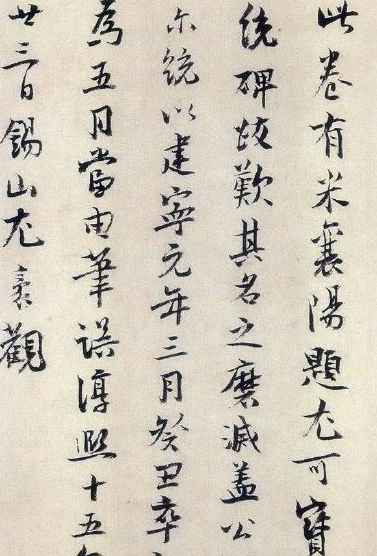 此卷有米襄陽題尤可寶
統碑故歎其名之磨滅蓋公
尓統以建寧元年三月癸丑卒
為五月當由筆誤淳熙十五年
廿三日錫山尤袤觀